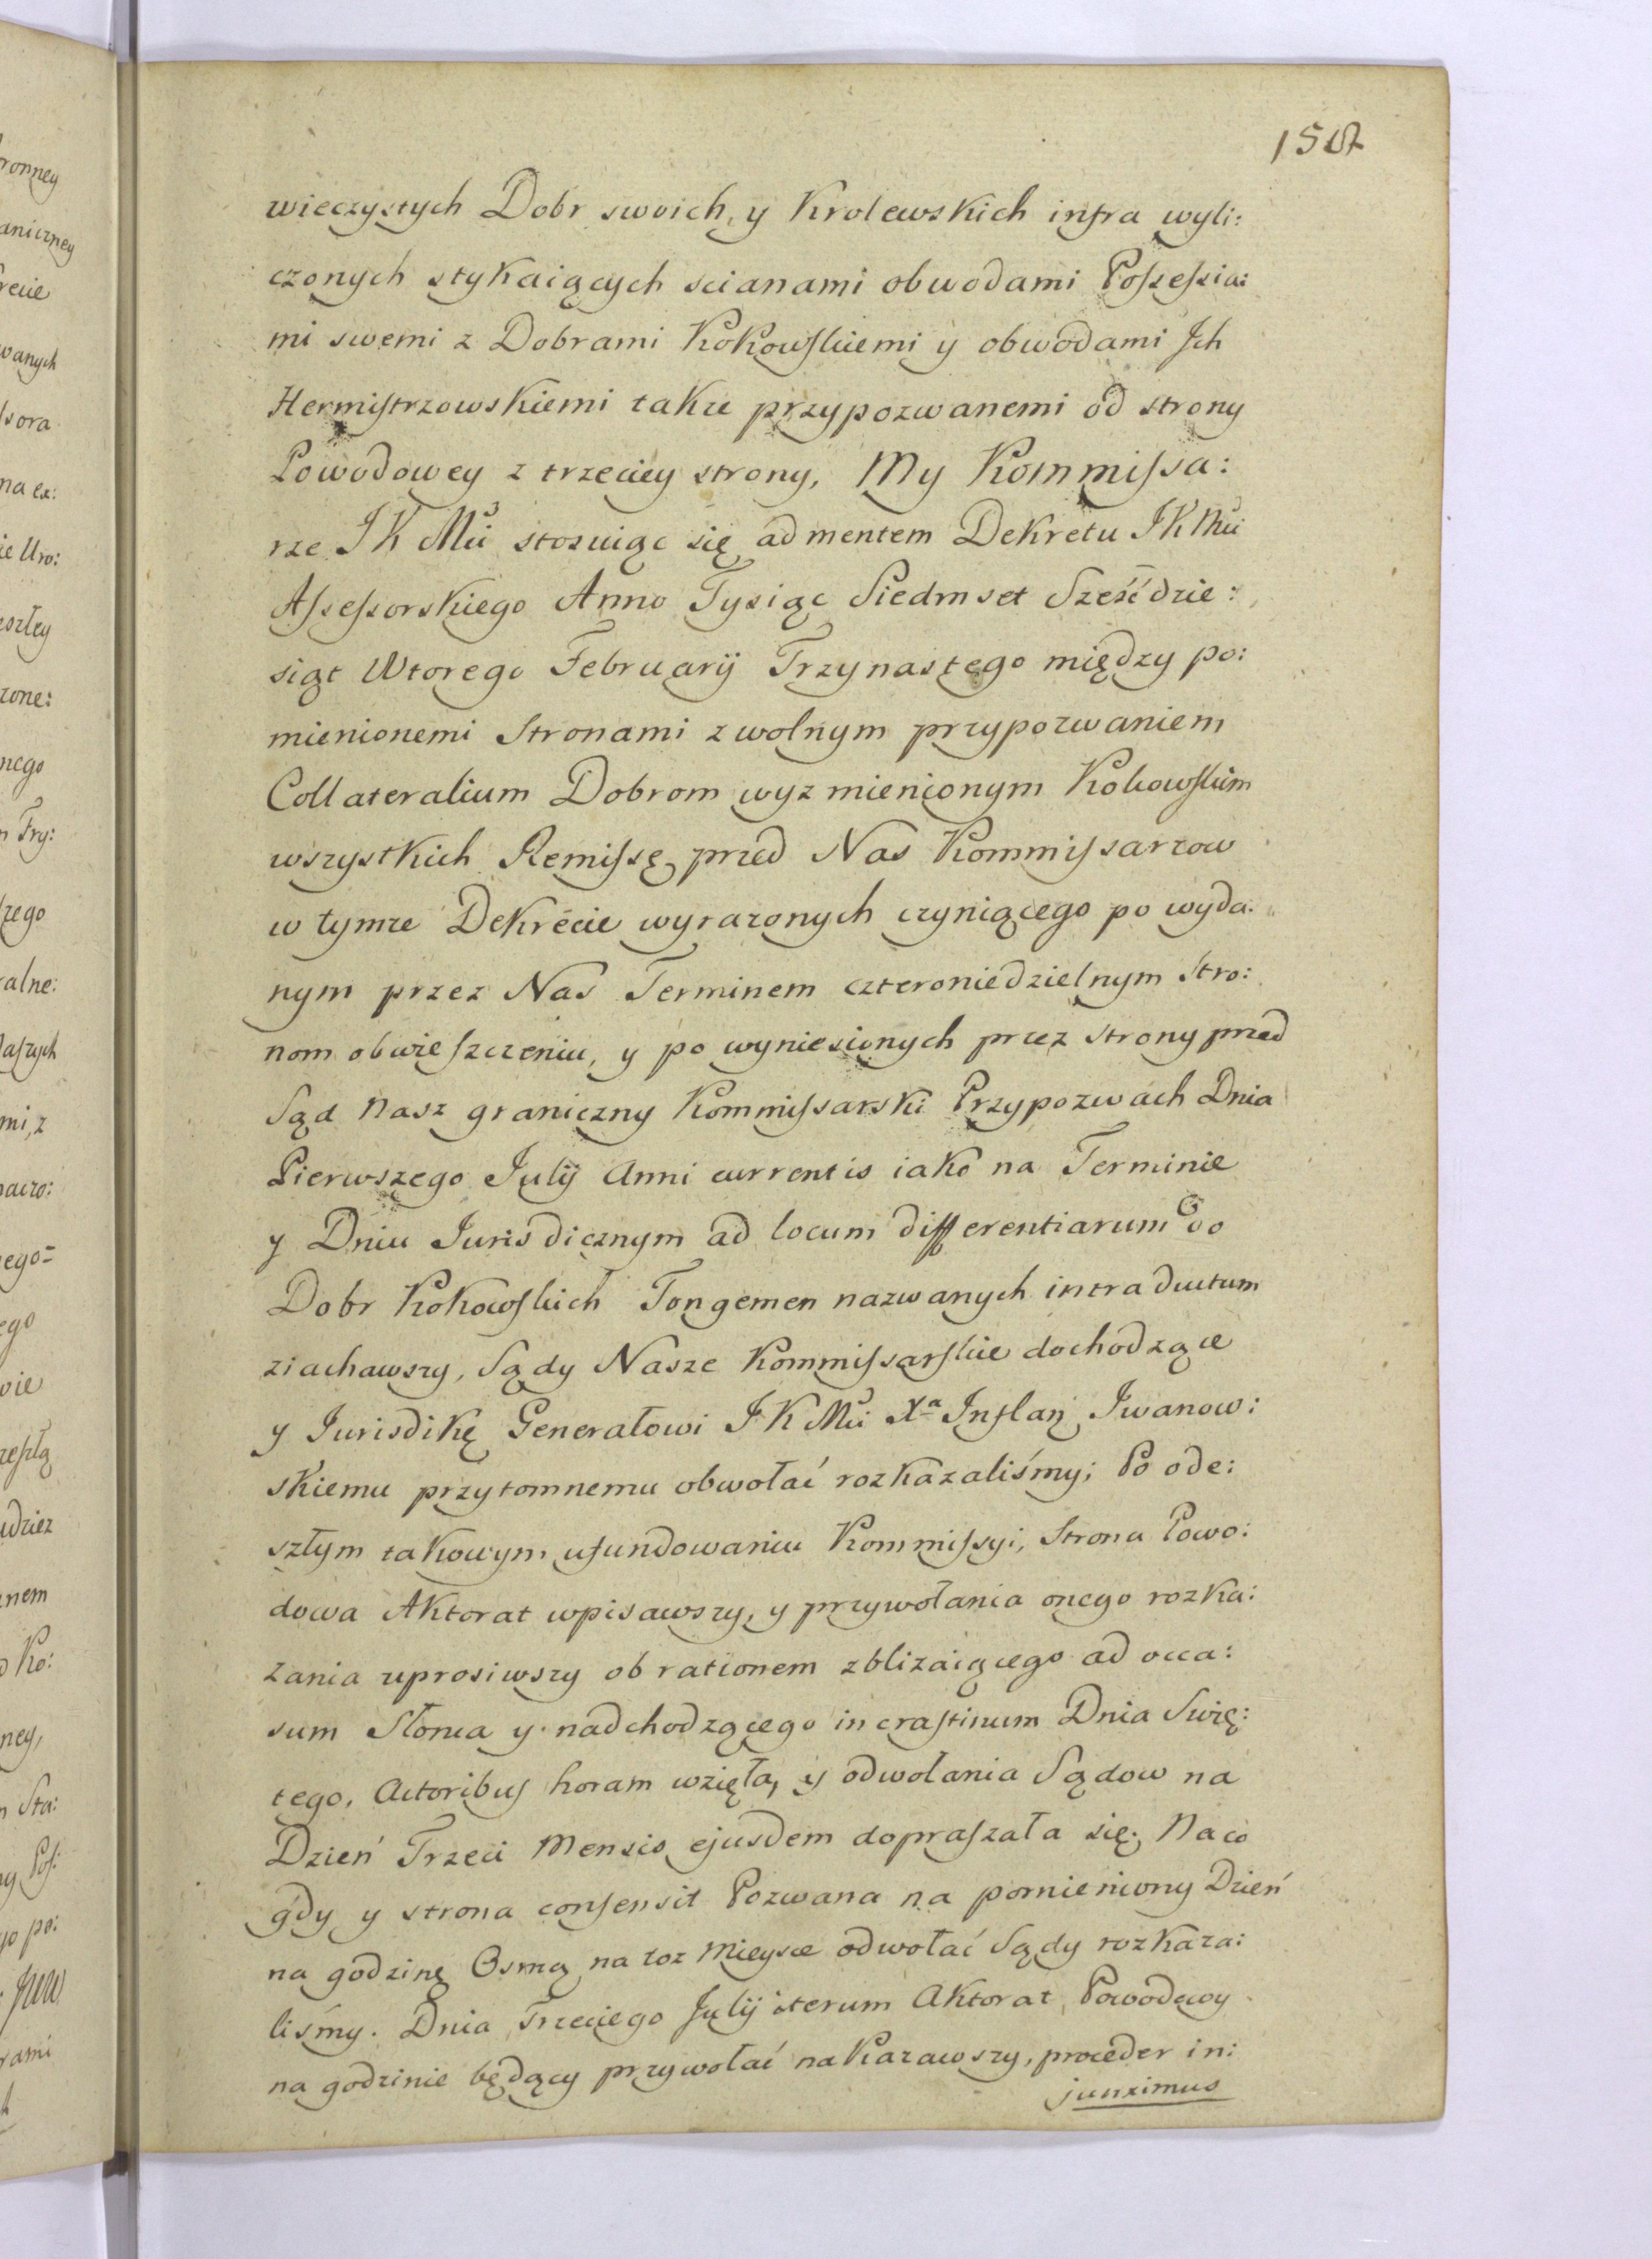 wieczystych Dobr swoich, y Krolewskich infra wyli:
czonych stykaiących scianami obwodami Poſseſsia:
mi swemi z Dobrami Kokowſkiemi y obwodami Jch
Hermiſtrzowskiemi takze przypozwanemi od strony
Powodowey z trzeciey strony, My Kommiſsa:
rze JK Mci stosuiąc się ad mentem Dekretu JKMci
Aſseſsorskiego Anno Tysiąc Siedmset Sześćdzie:
siąt Wtorego Februarij Trzynastego między po:
mienionemi Stronami z wolnym przypozwaniem
Collateralium Dobrom wyz mienionym Kokowſkim
wszystkich Remiſsę przed Nas Kommiſsarzow
w tymze Dekrecie wyrazonych czyniącego po wyda:
nym przez Nas Terminem czteroniedzielnym Stro:
nom obwieſzczeniu, y po wyniesionych przez strony przed
Sąd Nasz graniczny Kommiſsarski Przypozwach Dnia
Pierwszego Julij Anni currentis iako na Terminie
y Dniu Jurisdicznym ad locum differentiarum do
Dobr Kokowſkich Tongemen nazwanych intra ductum
ziachawszy, Sądy Nasze Kommiſsarſkie dochodzące
y Jurisdikę Generałowi JKMci Xa Inflan Iwanow:
skiemu przytomnemu obwołać rozkazaliśmy; Po ode:
szłym takowym ufundowaniu Kommiſsyi, Strona Powo:
dowa Aktorat wpisawszy, y przywołania onego rozka:
zania uprosiwszy ob rationem zblizaiącego ad occa:
sum Słonca y nadchodzącego in craſtinum Dnia Swię:
tego, Actoribuſ horam wzięła, y odwołania Sądow na
Dzień Trzeci Mensis ejusdem dopraſzała się; Na co
gdy y strona conſensit Pozwana na pomieniony Dzień
na godzinę Osmą na toz Mieysce odwołać Sądy rozkaza:
liśmy. Dnia Trzeciego Julij iterum Aktorat Powodowy
na godzinie będący przywołać nakazawszy, proceder in:
junximus